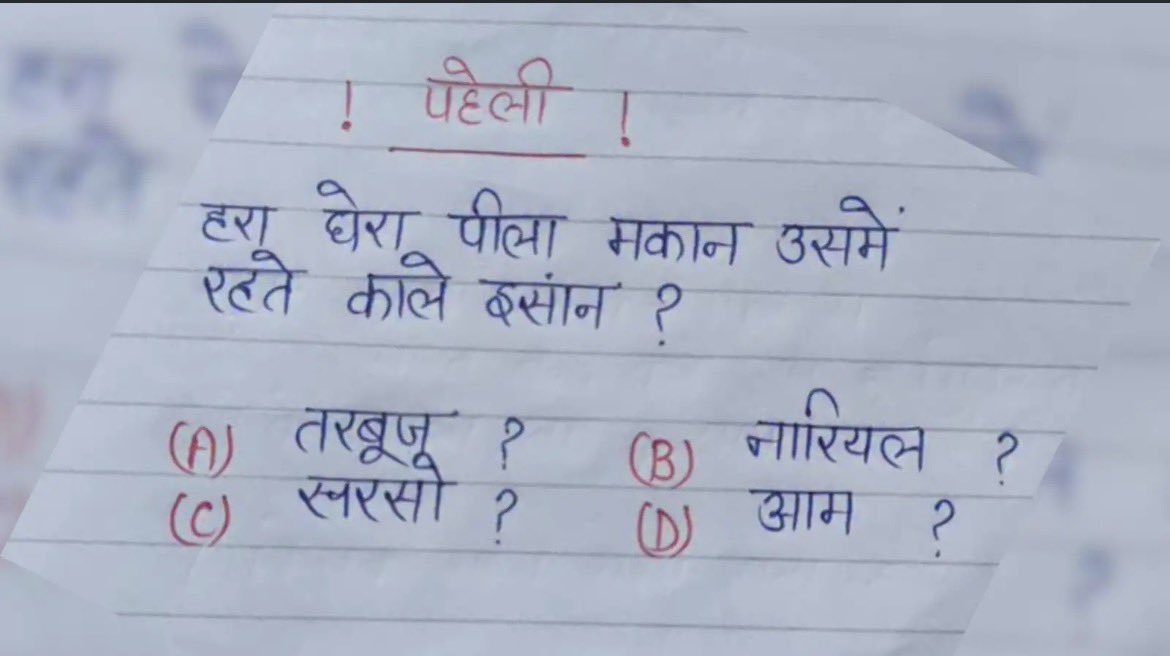 ! पहेली !
हरा घेरा पीला मकान उसमें
रहते काले इसांन ?
(A) तरबूजू ? (B) नारियल ?
(C) सरसो ? (D) आम ?